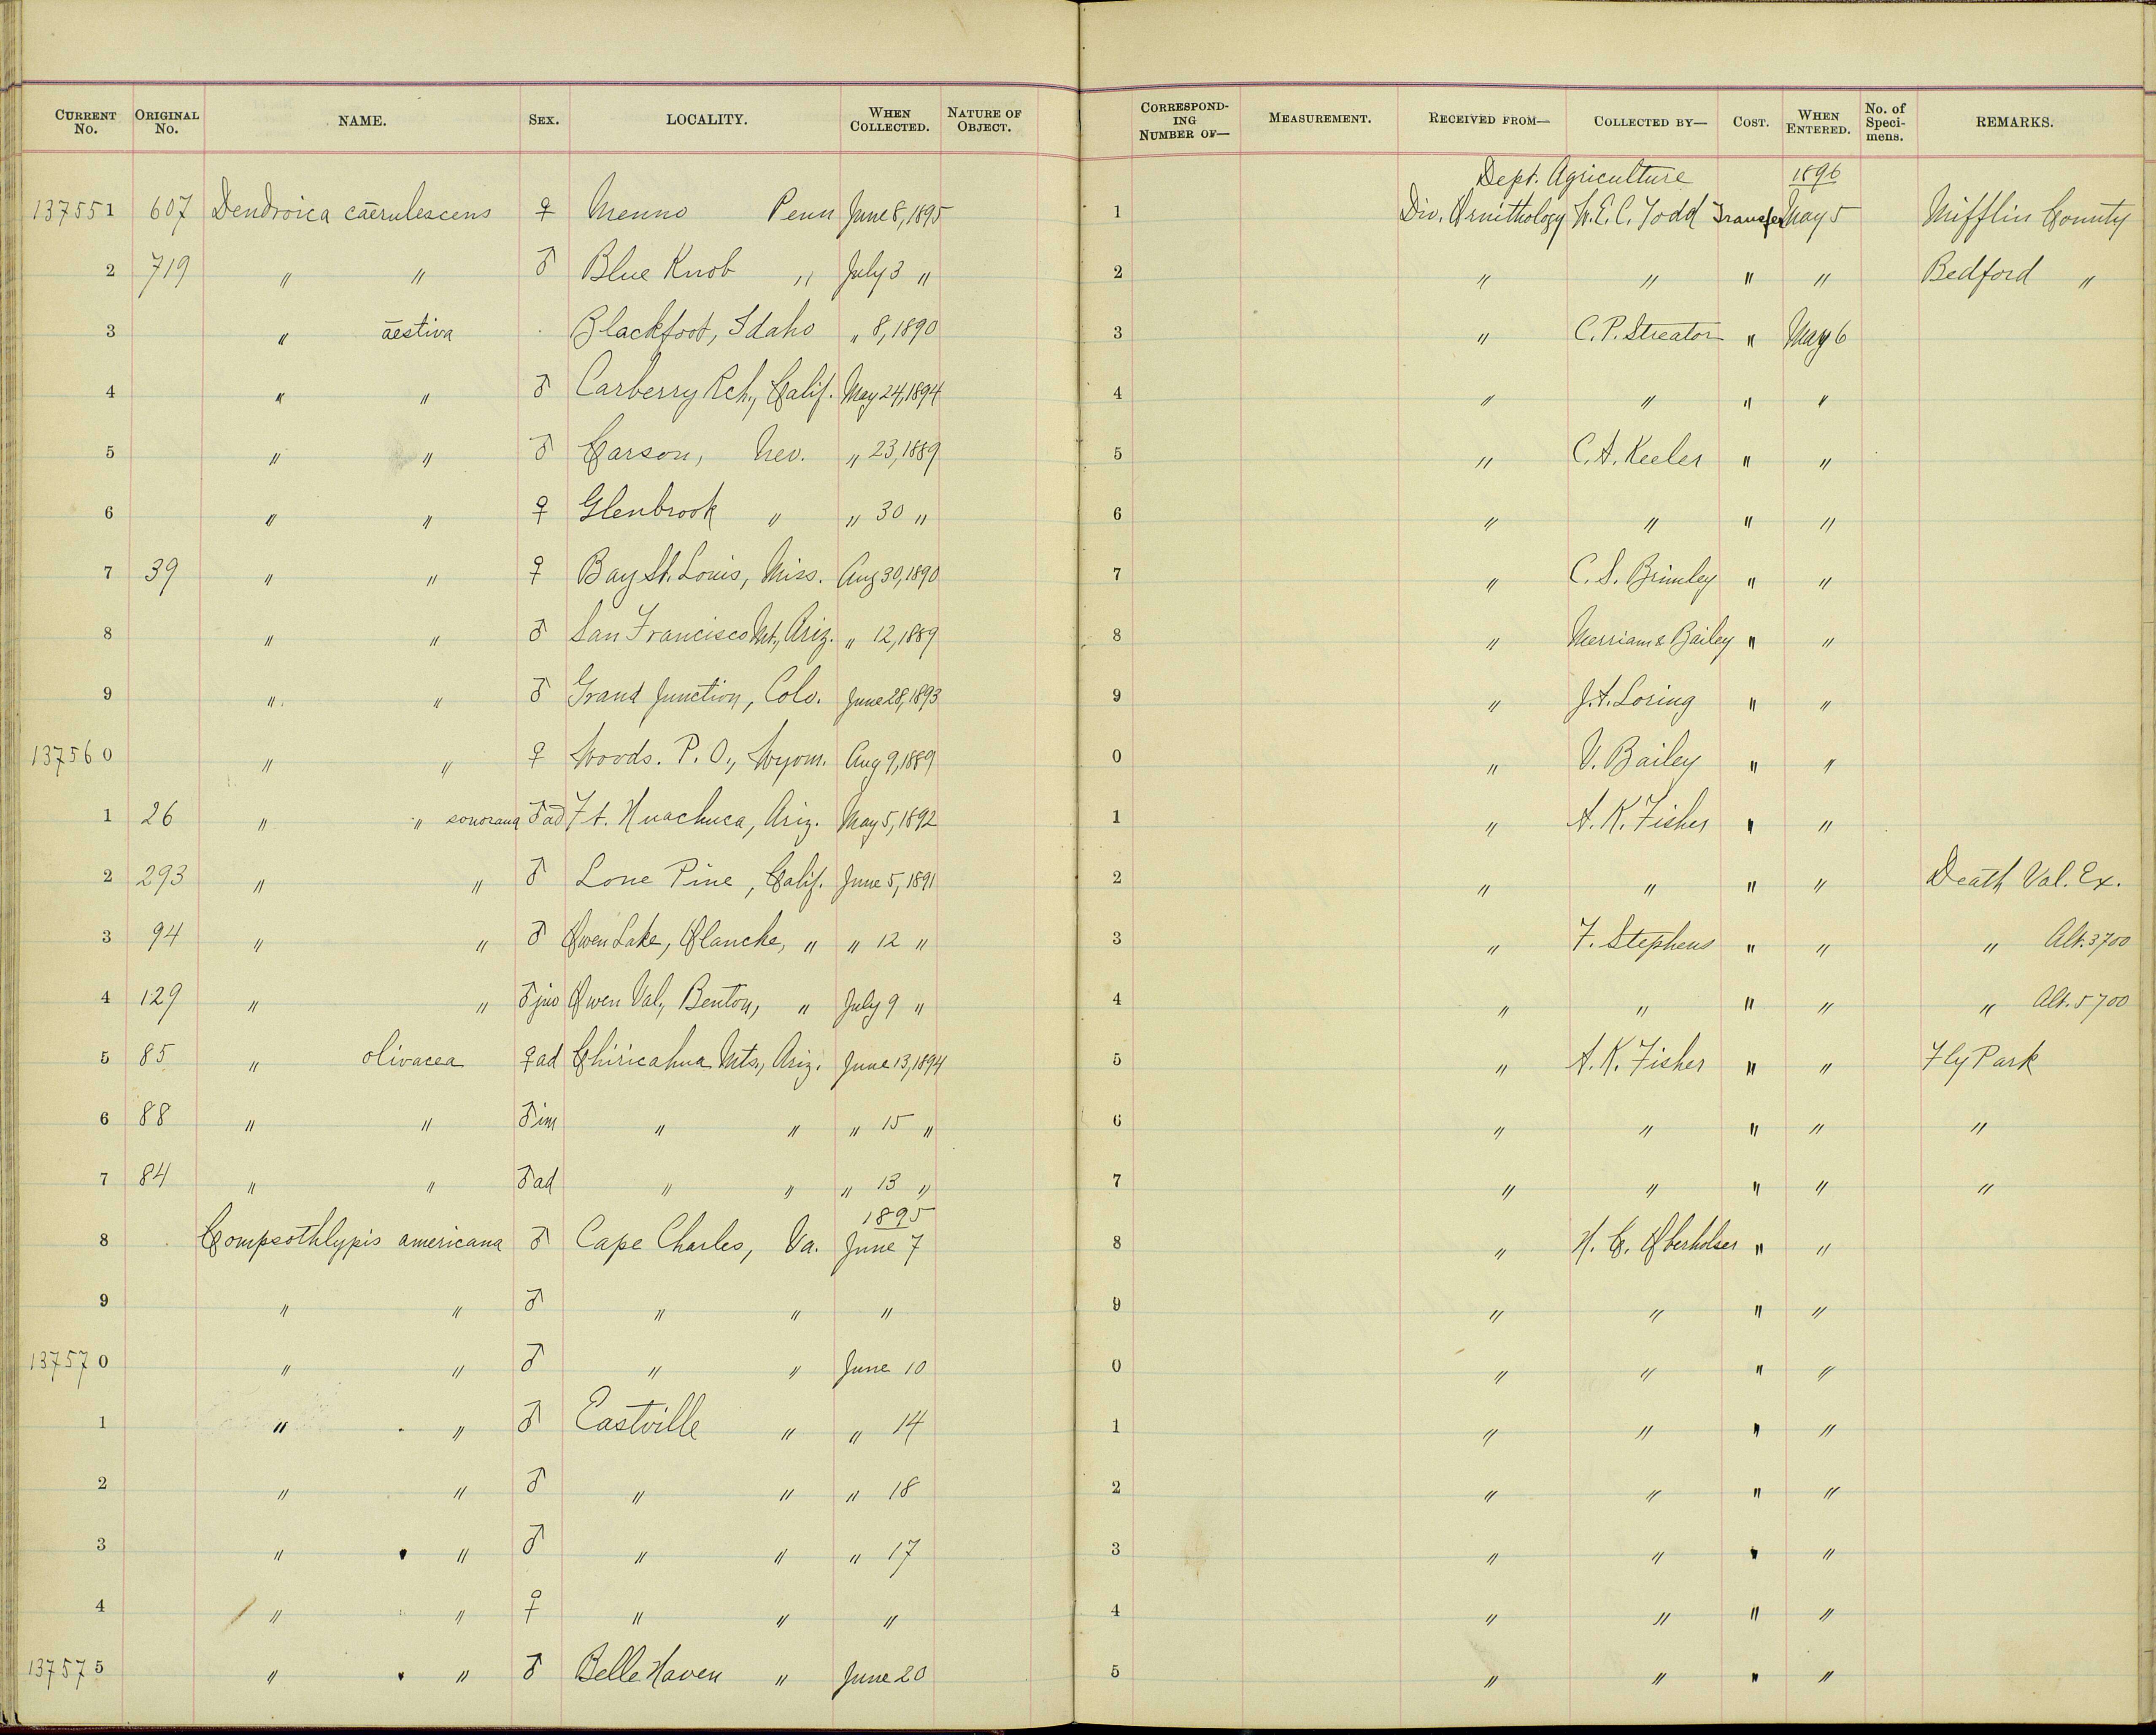 CURRENT No. ORIGINAL No. NAME. SEX. LOCALITY. WHEN COLLECTED. NATURE OF OBJECT. CORRESPONDING NUMBER OF— MEASUREMENT. RECEIVED FROM— COLLECTED BY— COST. WHEN ENTERED. No. of Specimens. REMARKS.
Dept. Agriculture 1896
137551 607 Dendroica caerulescens ♀ Menno Penn June 8, 1895 1 Div. Ornithology W.E.C. Todd Transfer May 5 Mifflin County
2 719 " " ♂ Blue Knob " July 3 " 2 " " " " Bedford "
3 " aestiva Blackfoot, Idaho " 8, 1890 3 " C.P. Streator " May 6
4 " " ♂ Carberry Rch., Calif. May 24, 1894 4 " " " "
5 " " ♂ Carson, Nev. " 23, 1889 5 " C.A. Keeler " "
6 " " ♀ Glenbrook " " 30 " 6 " " " "
7 39 " " ♀ Bay St. Louis, Miss. Aug 30, 1890 7 " C.S. Brimley " "
8 " " ♂ San Francisco Mt., Ariz. " 12, 1889 8 " Merriam & Bailey " "
9 " " ♂ Grand Junction, Colo. June 28, 1893 9 " J.A. Loring " "
137560 " " ♀ Woods. P.O., Wyom. Aug 9, 1889 0 " V. Bailey " "
1 26 " " sonorana ♂ ad Ft. Huachuca, Ariz. May 5, 1892 1 " A.K. Fisher " "
2 293 " " ♂ Lone Pine, Calif. June 5, 1891 2 " " " " Death Val. Ex.
3 94 " " ♂ Owen Lake, Olancke, " " 12 " 3 " F. Stephens " " " Alt. 3700
4 129 " " ♂ juv Owen Val., Benton, " July 9 " 4 " " " " " Alt. 5700
5 85 " olivacea ♀ ad Chiricahua Mts., Ariz. June 13, 1894 5 " A.K. Fisher " " Fly Park
6 88 " " ♂ im " " " 15 " 6 " " " " "
7 84 " " ♂ ad " " " 13 " 7 " " " " "
1895
8 Compsothlypis americana ♂ Cape Charles, Va. June 7 8 " H.C. Oberholser " "
9 " " ♂ " " " 9 " " " "
137570 " " ♂ " " June 10 0 " " " "
1 " " ♂ Eastville " " 14 1 " " " "
2 " " ♂ " " " 18 2 " " " "
3 " " ♂ " " " 17 3 " " " "
4 " " ♀ " " " 4 " " " "
137575 " " ♂ Belle Haven " June 20 5 " " " "